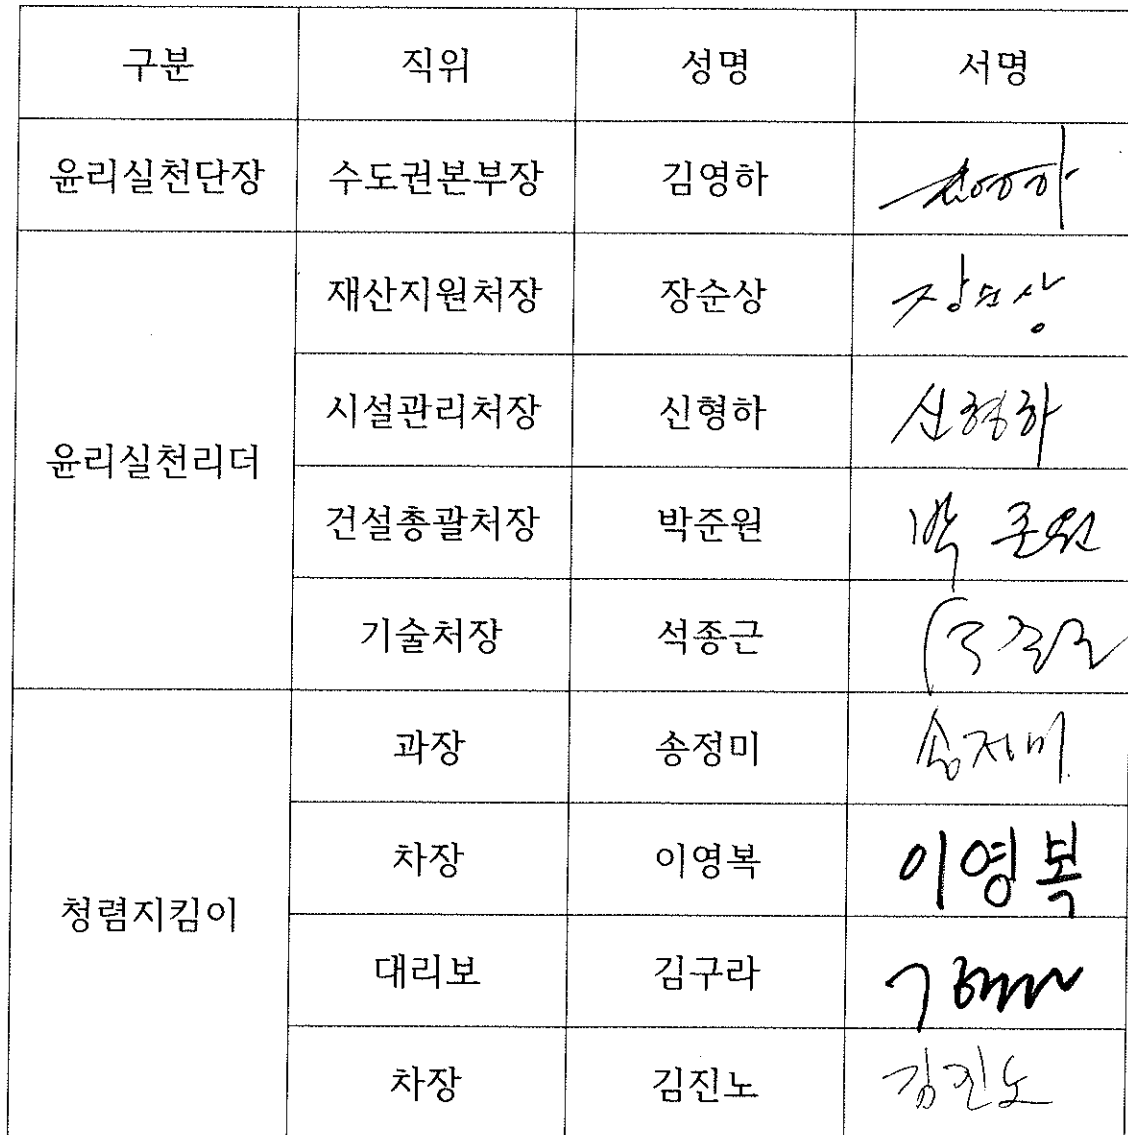 구분 직위 성명 서명
윤리실천단장 수도권본부장 김영하
윤리실천리더 재산지원처장 장순상 장순상
시설관리처장 신형하 신형하
건설총괄처장 박준원 박준원
기술처장 석종근
청렴지킴이 과장 송정미 송정미
차장 이영복 이영복
대리보 김구라
차장 김진노 김진노